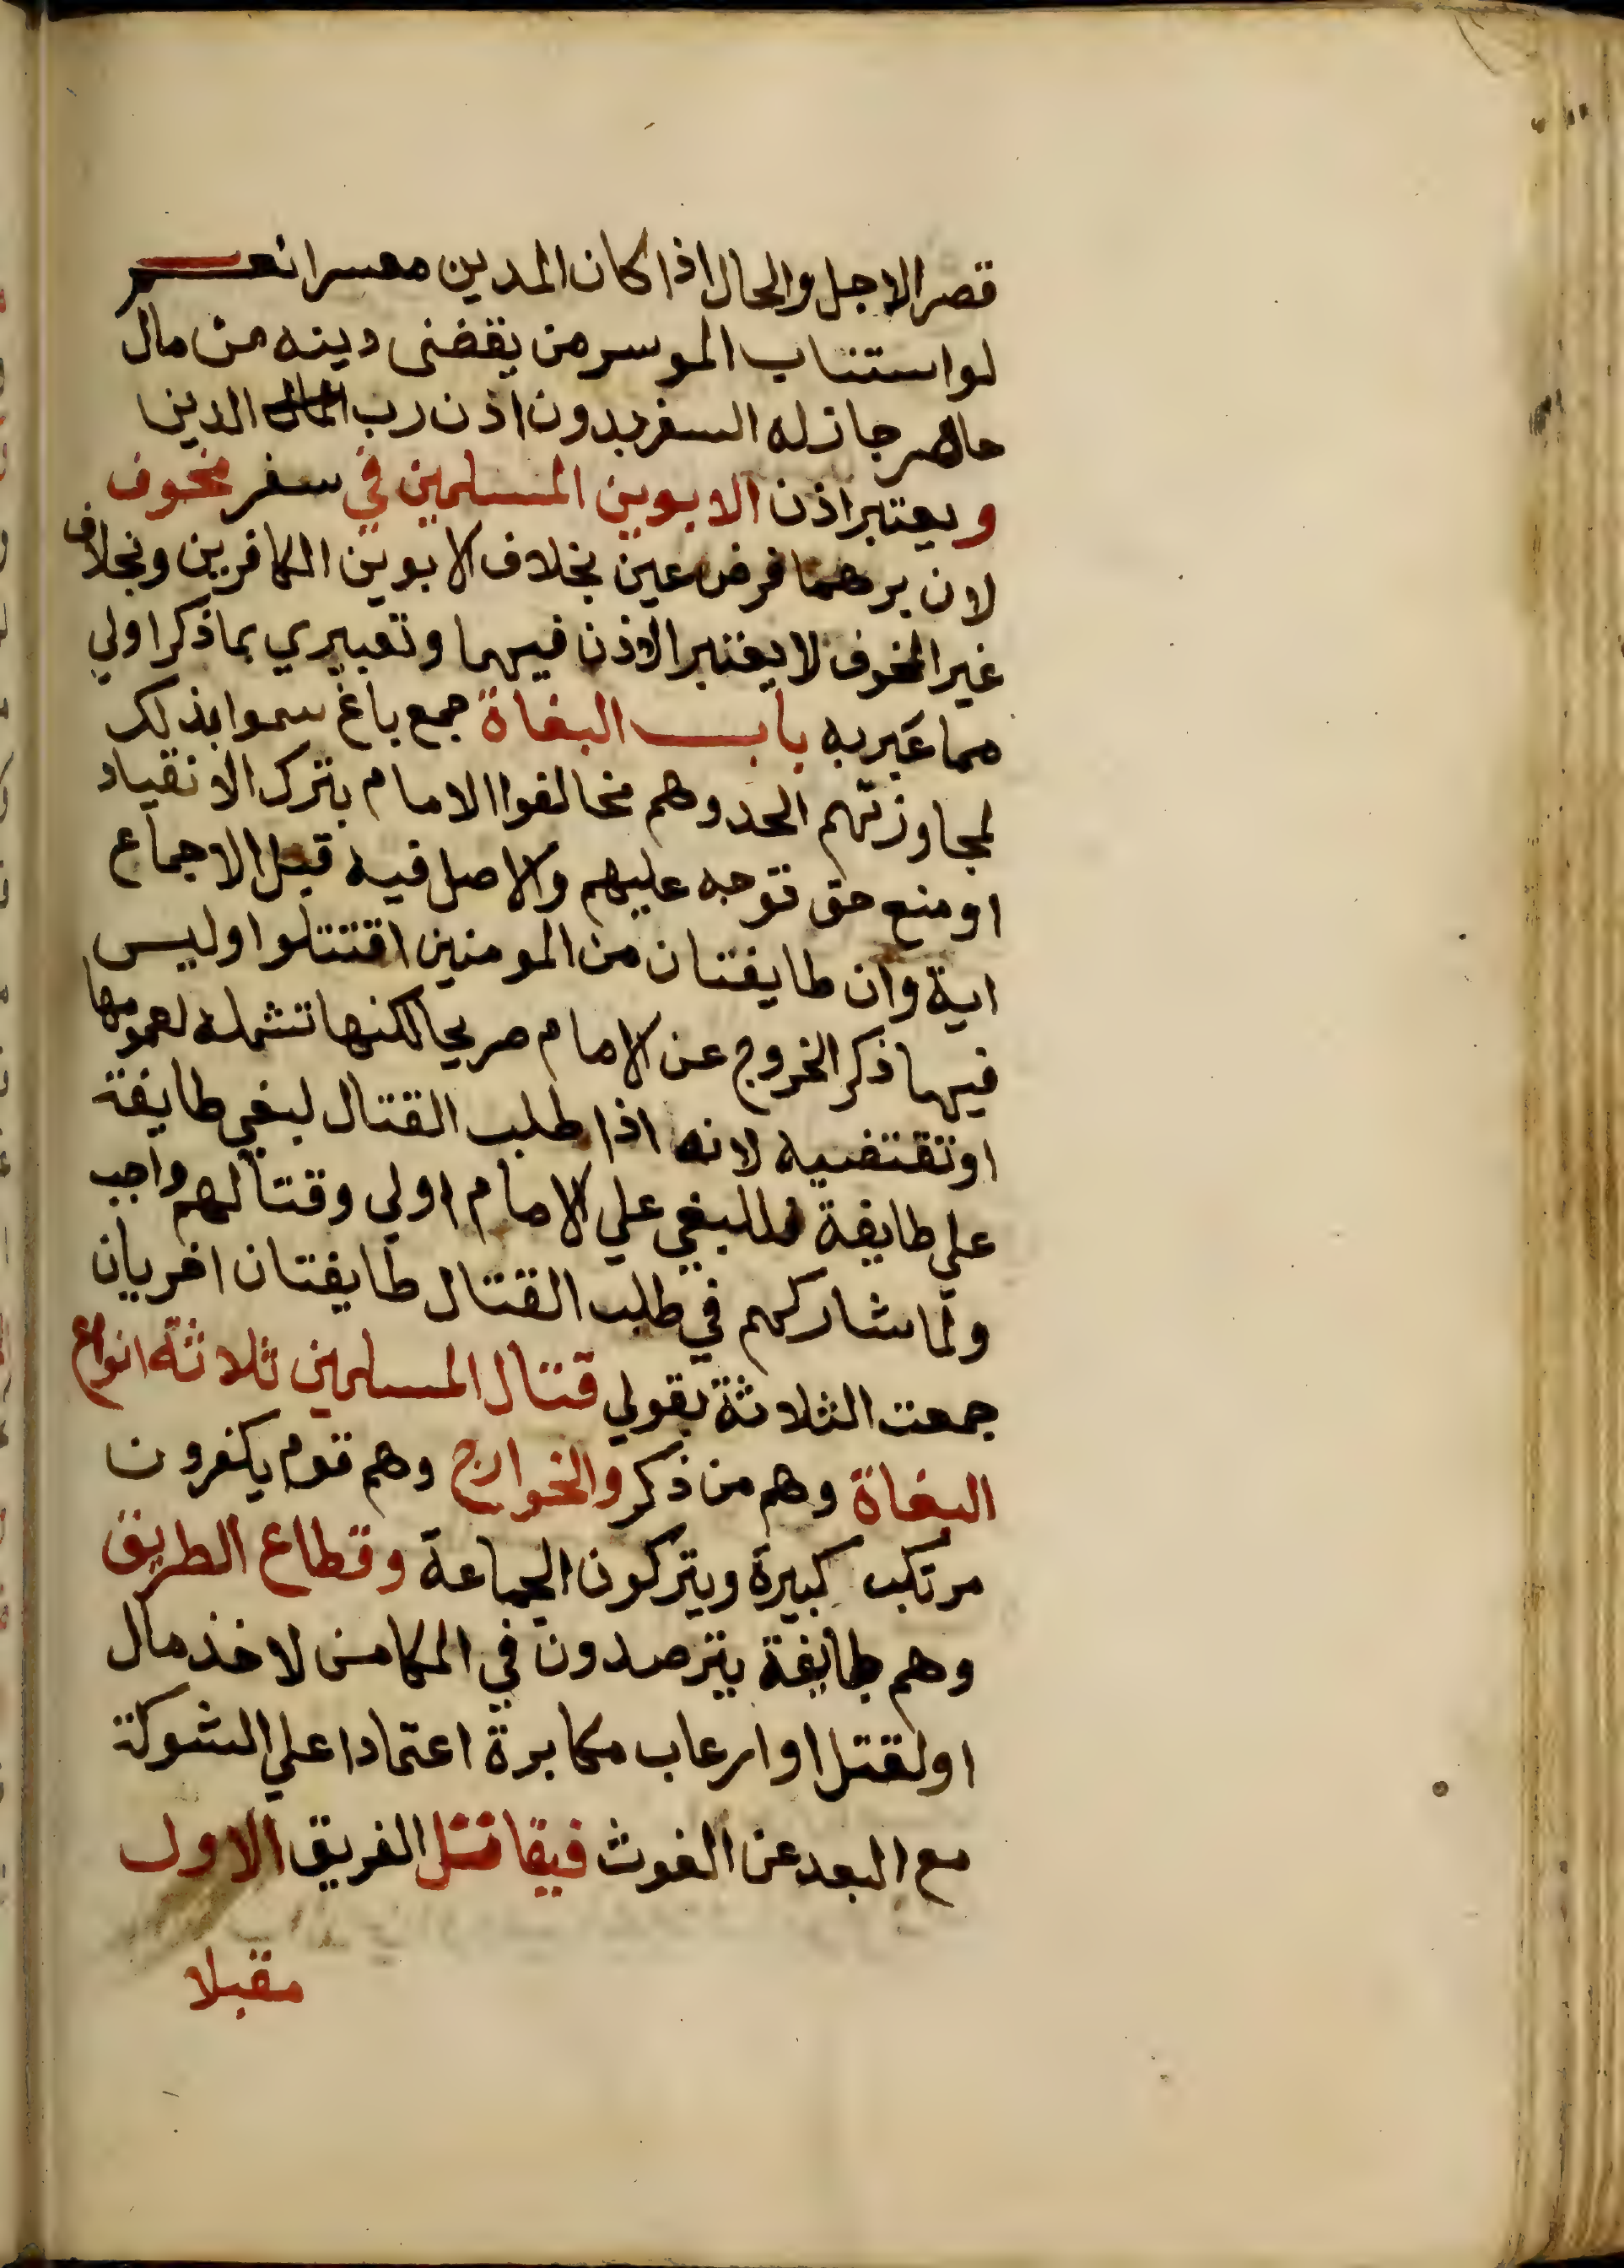 قصر الاجل والحال اذا كان المدين معسرا نعم
لو استناب الموسر من يقضى دينه من مال
حاضر جاز له السفر بدون اذن رب المال الدين
ويعتبر اذن الابوين المسلمين في سفر مخوف
لان برهما فرض عين بخلاف الابوين الكافرين وبخلاف
غير المخوف لا يعتبر الاذن فيهما وتعبيري بما ذكر اولي
مما عبر به باب البغاة جمع باغ سموا بذلك
لمجاوزتهم الحد وهم مخالفوا الامام بترك الانقياد
او منع حق توجه عليهم والاصل فيه قبل الاجماع
اية وان طايفتان من المومنين اقتتلوا وليس
فيها ذكر الخروج عن الامام صريحا لكنها تشمله لعمومها
او تقتضيه لانه اذا طلب القتال لبغي طايفة
علي طايفة فللبغي علي الامام اولي وقتالهم واجب
ولما شاركهم في طلب القتال طايفتان اخريان
جمعت الثلاثة بقولي قتال المسلمين ثلاثة انواع
البغاة وهم من ذكر والخوارج وهم قوم يكفرون
مرتكب كبيرة ويتركون الجماعة وقطاع الطريق
وهم طايفة يترصدون في المكامن لاخذ مال
او لقتل او ارعاب مكابرة اعتمادا علي الشوكة
مع البعد عن الغوث فيقاتل الفريق الاول
مقبلا